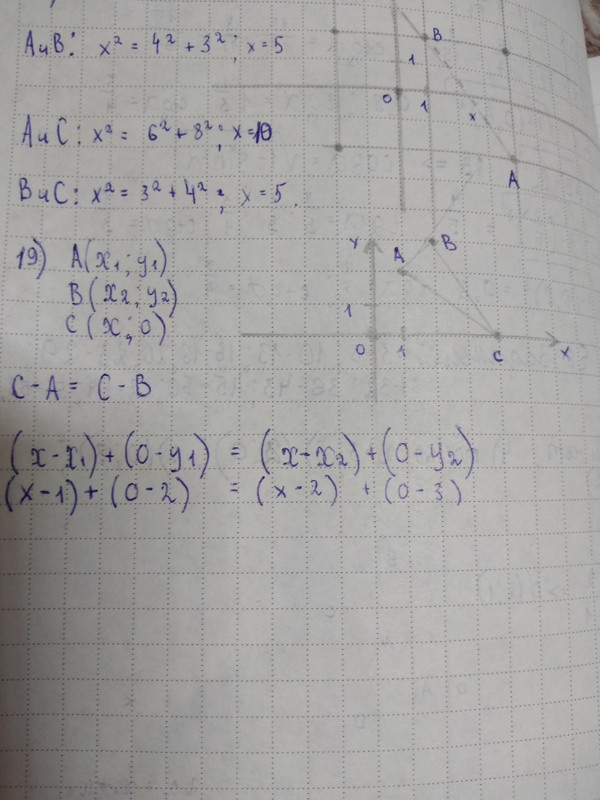 A и B: x² = 4² + 3²; x = 5
A и C: x² = 6² + 8²; x = 10
B и C: x² = 3² + 4²; x = 5.
B
1
0
1
x
A
19) A(x₁; y₁)
B(x₂; y₂)
C(x; 0)
C - A = C - B
(x - x₁) + (0 - y₁) = (x - x₂) + (0 - y₂)
(x - 1) + (0 - 2) = (x - 2) + (0 - 3)
Y
A
B
1
0
1
C
X